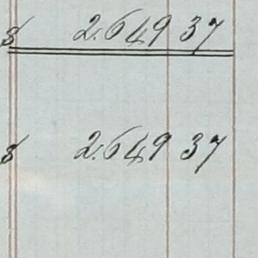 $ 2.649 37
$ 2.649 37